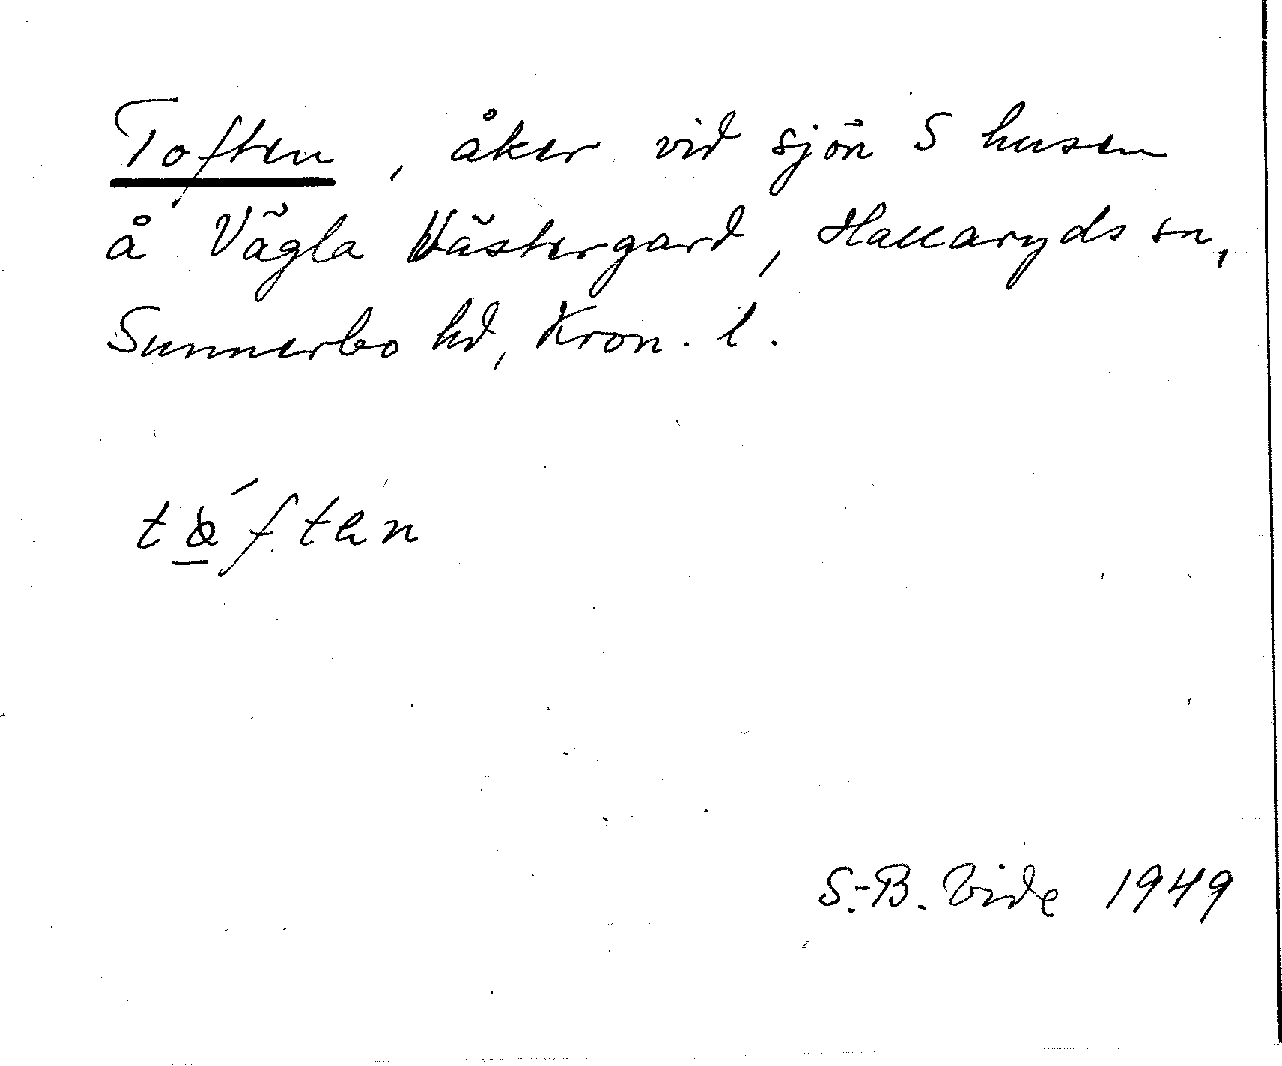 Toften, åker vid sjön S husen
å Vägla Västergard, Hallaryds sn,
Sunnerbo hd, Kron. l.
S.-B. Vide 1949